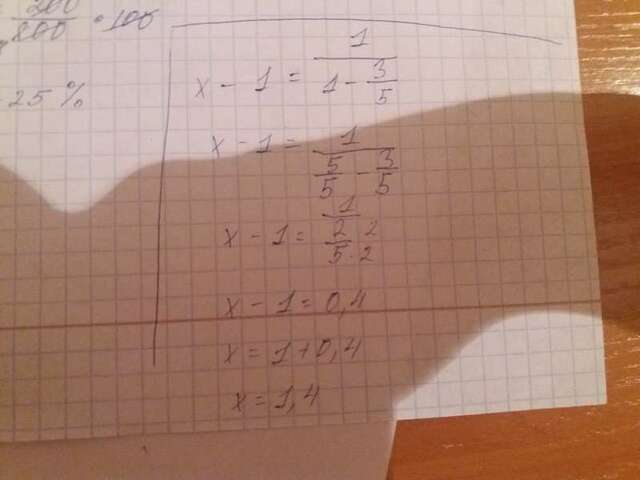 300/800 · 100
25%
x - 1 = 1/(1 - 3/5)
x - 1 = 1/(5/5 - 3/5)
x - 1 = 1/(2·2/5·2)
x - 1 = 0,4
x = 1 + 0,4
x = 1,4